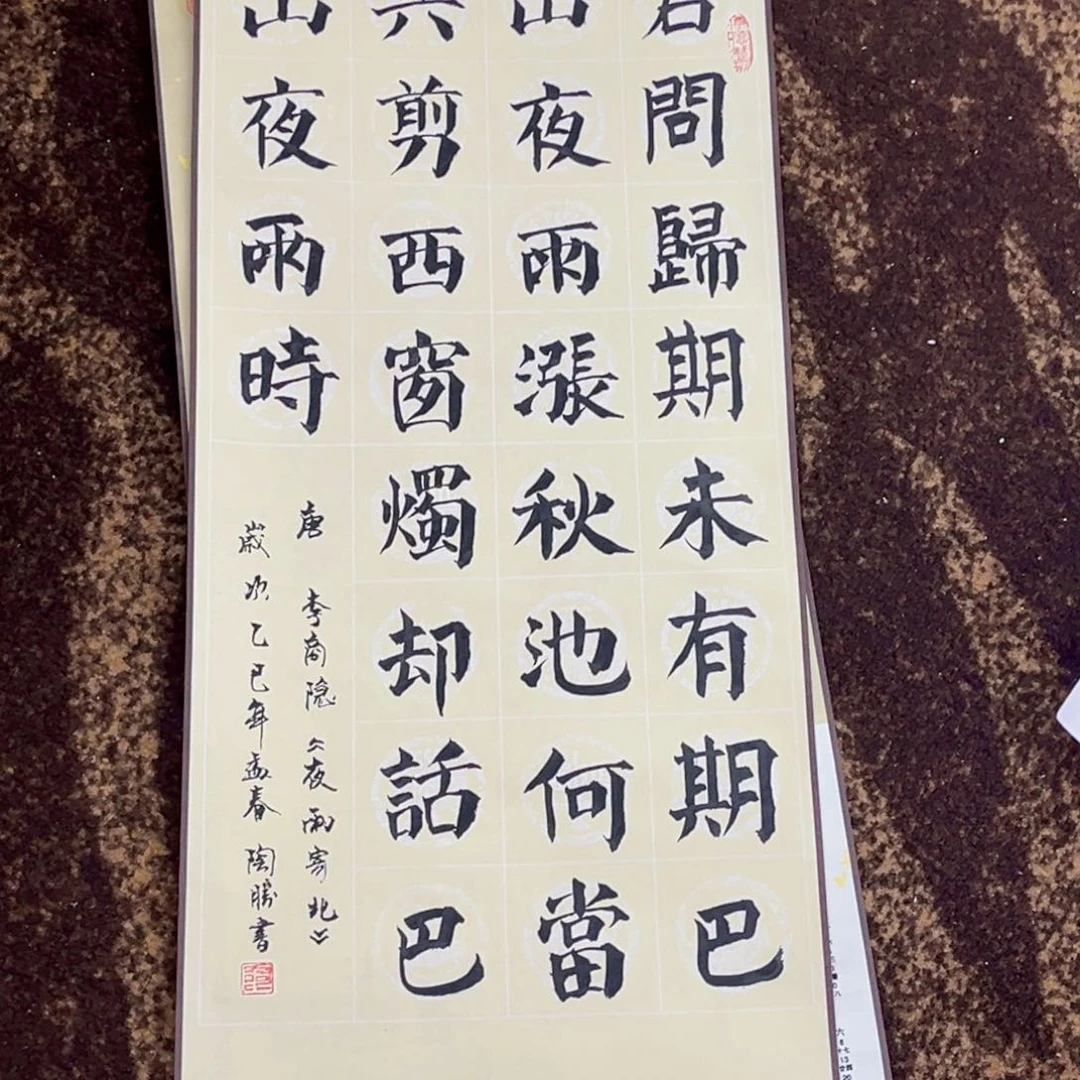 君問歸期未有期巴
山夜雨漲秋池何當
共剪西窗燭却話巴
山夜雨時
唐 李商隐《夜雨寄北》
歲次乙巳年孟春 陶勝書